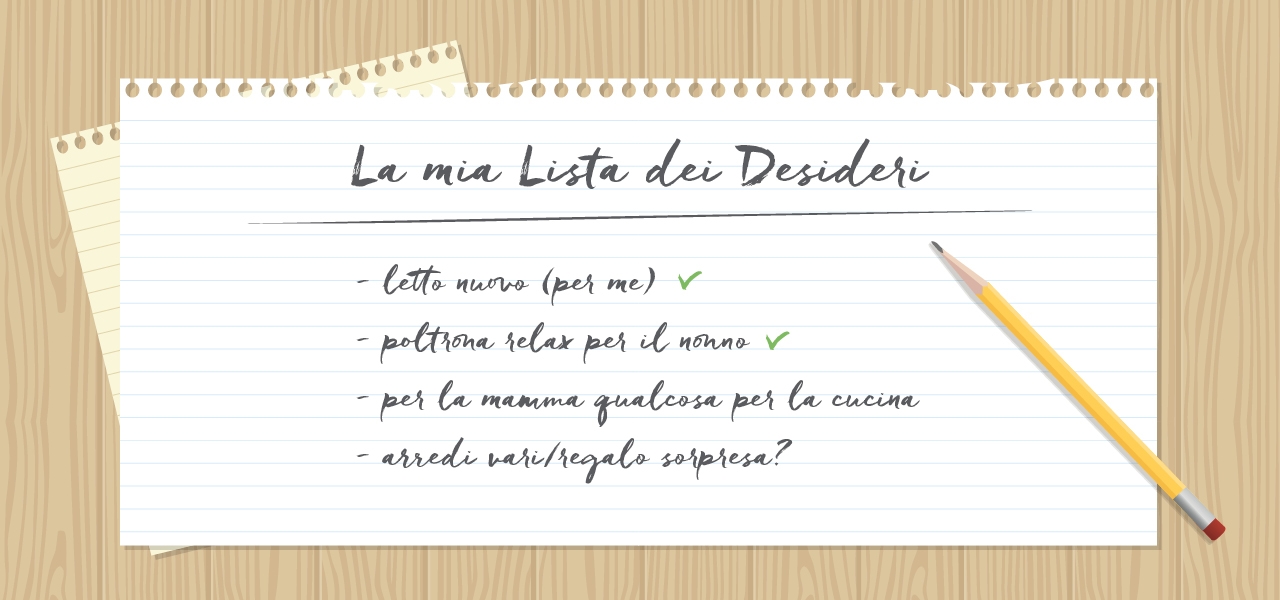 La mia Lista dei Desideri
- letto nuovo (per me) ✓
- poltrona relax per il nonno ✓
- per la mamma qualcosa per la cucina
- arredi vari/regalo sorpresa?